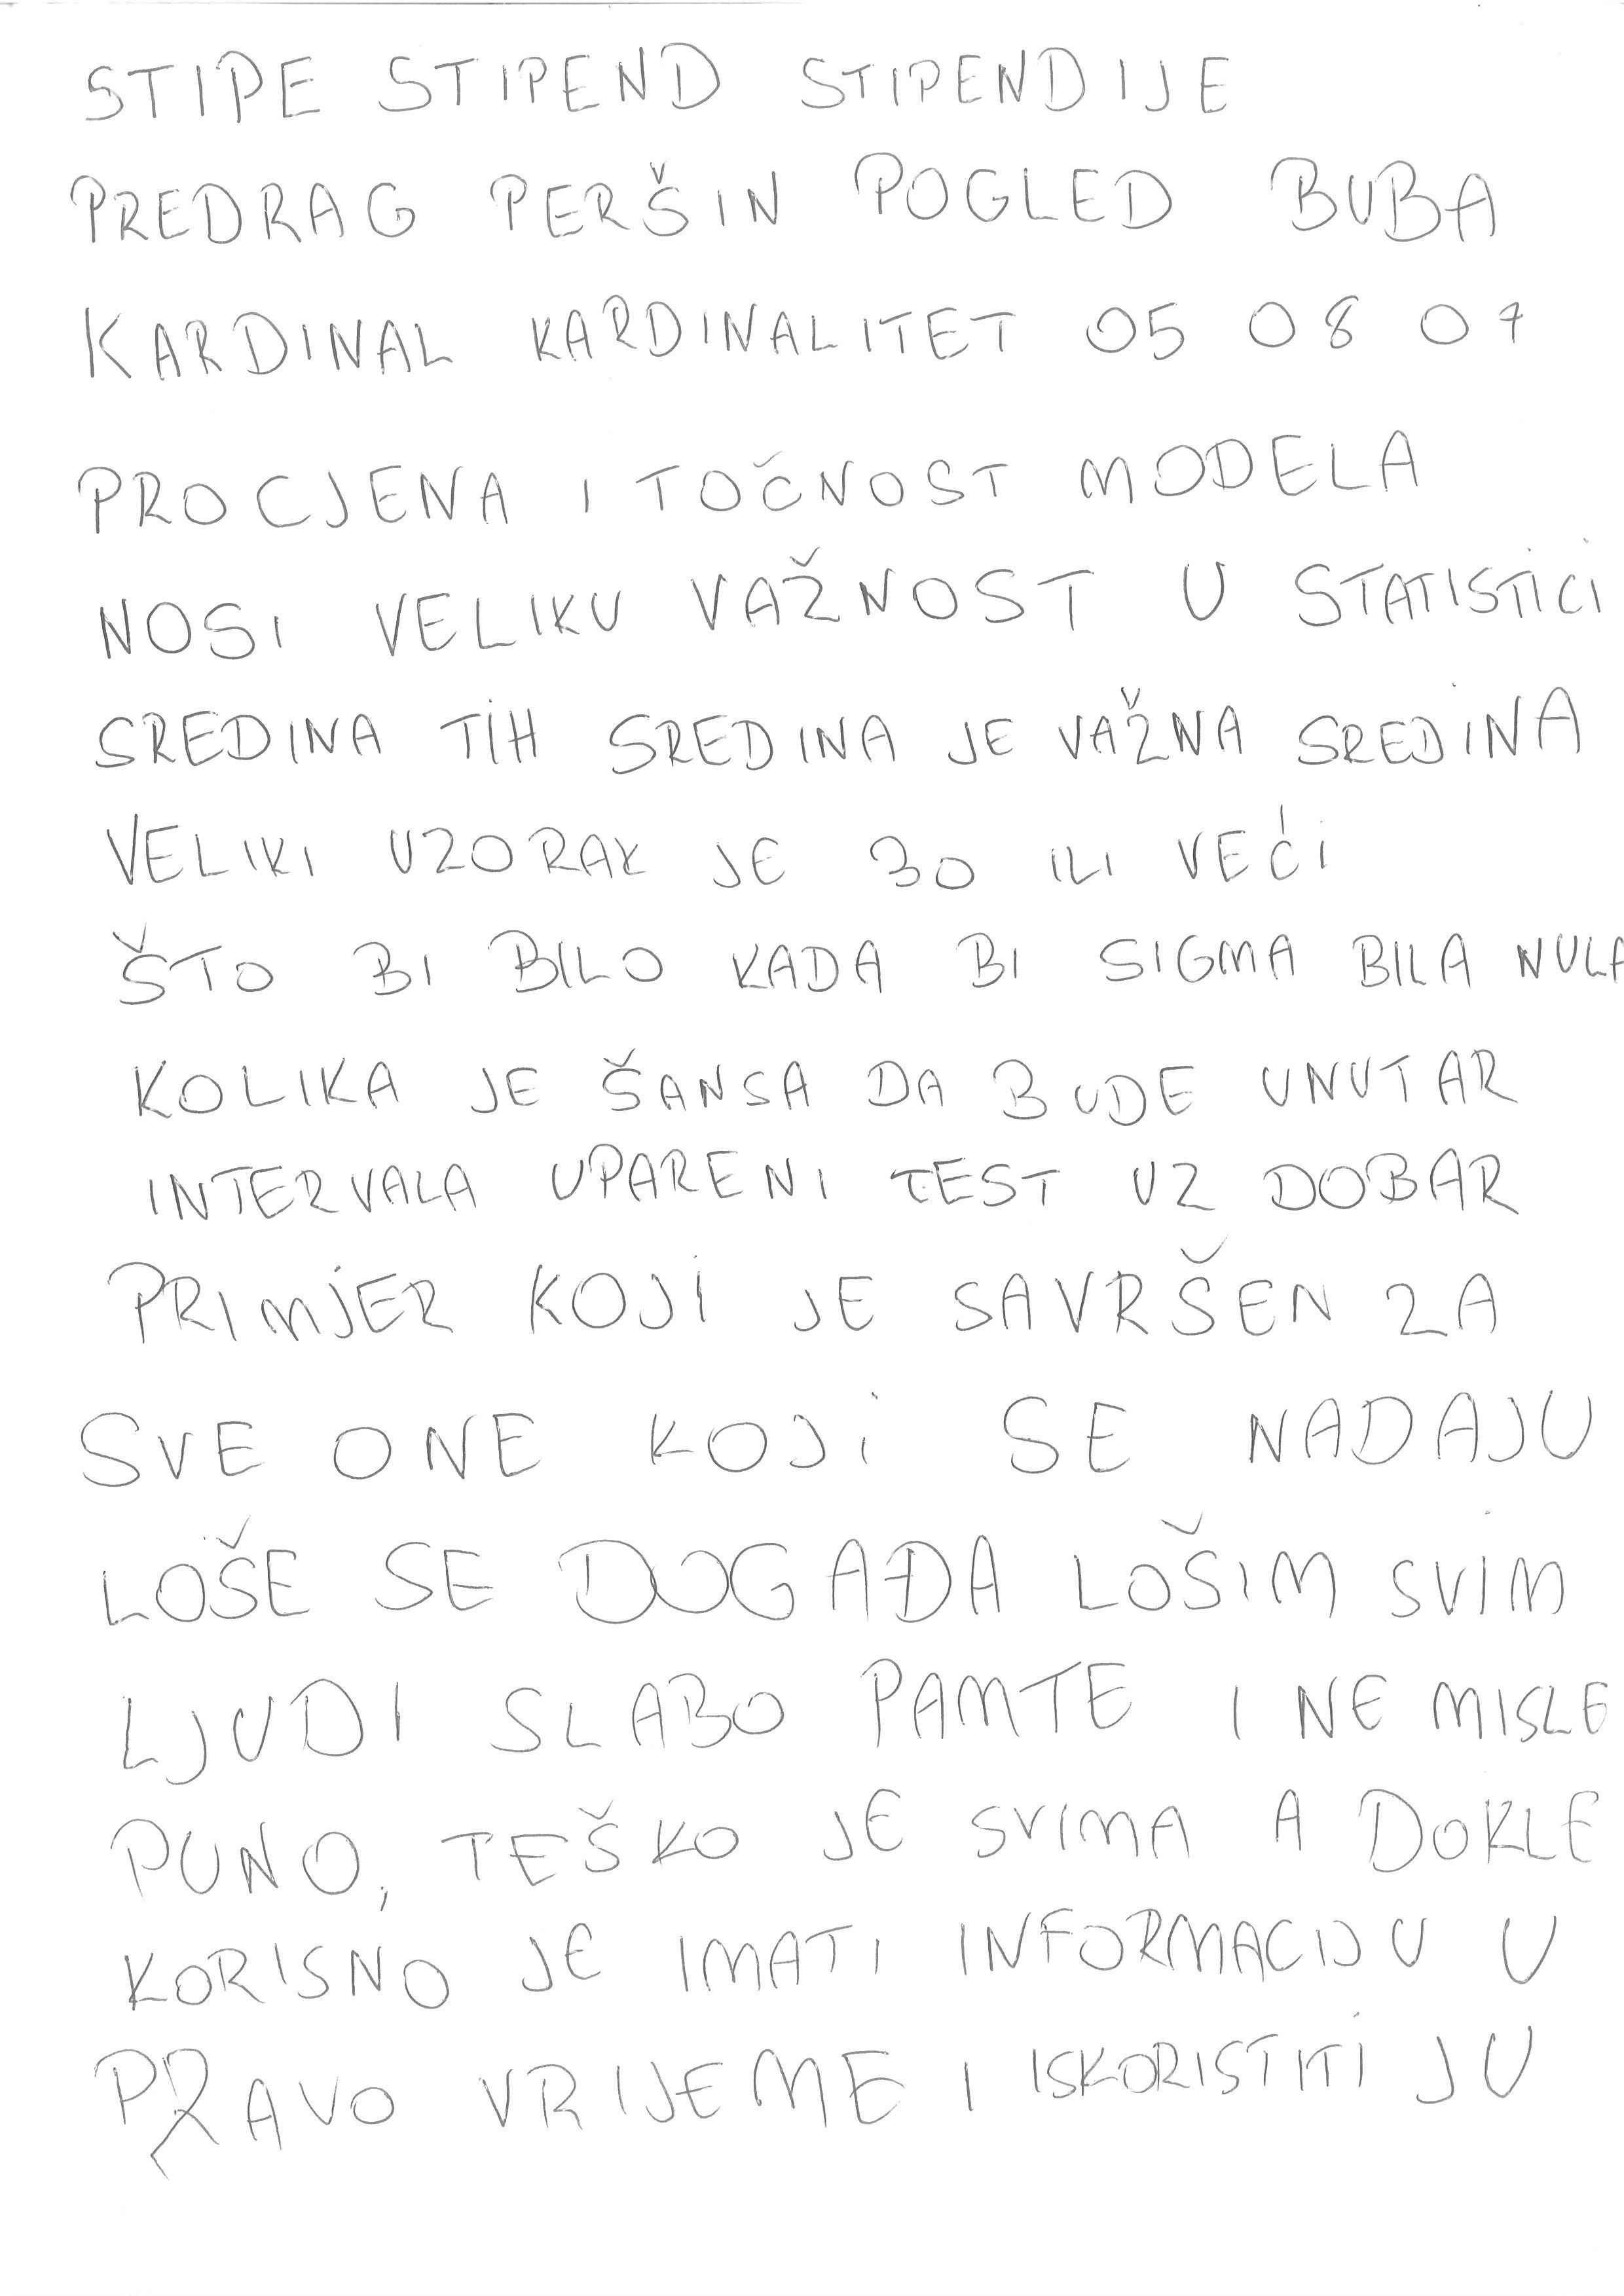 STIPE STIPEND STIPENDIJE
PREDRAG PERŠIN POGLED BUBA
KARDINAL KARDINALITET 05 08 07
PROCJENA I TOČNOST MODELA
NOSI VELIKU VAŽNOST U STATISTICI
SREDINA TIH SREDINA JE VAŽNA SREDINA
VELIKI UZORAK JE 30 ILI VEĆI
ŠTO BI BILO KADA BI SIGMA BILA NULA
KOLIKA JE ŠANSA DA BUDE UNUTAR
INTERVALA UPARENI TEST UZ DOBAR
PRIMJER KOJI JE SAVRŠEN ZA
SVE ONE KOJI SE NADAJU
LOŠE SE DOGAĐA LOŠIM SVIM
LJUDI SLABO PAMTE I NE MISLE
PUNO, TEŠKO JE SVIMA A DOKLE
KORISNO JE IMATI INFORMACIJU U
PRAVO VRIJEME I ISKORISTITI JU